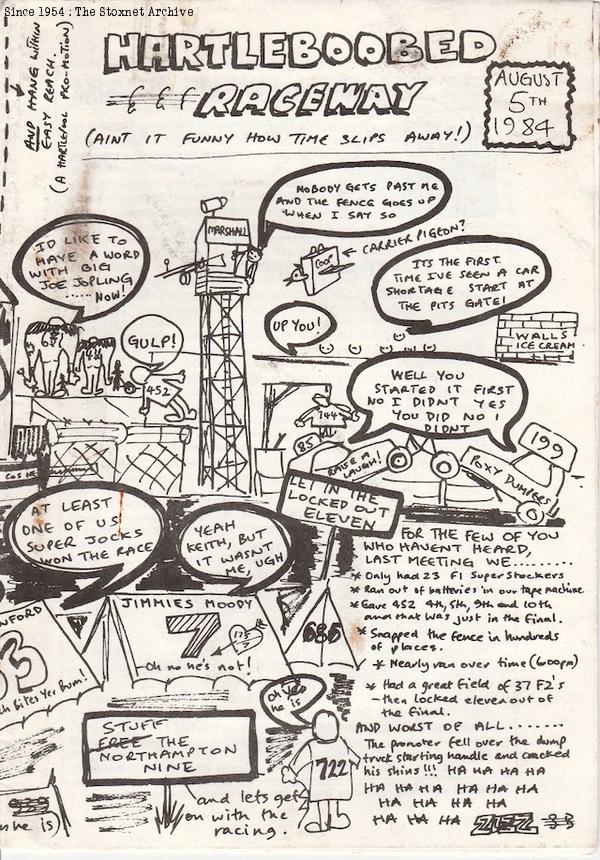 Since 1954 : The Stoxnet Archive
AND HANG WITHIN
EASY REACH.
(A HARTLEPOOL PRO-MOTION)
HARTLEBOOBED
RACEWAY
(AINT IT FUNNY HOW TIME SLIPS AWAY!)
AUGUST
5TH
1984
NOBODY GETS PAST ME
AND THE FENCE GOES UP
WHEN I SAY SO
MARSHALL
COOP
← CARRIER PIGEON?
I'D LIKE TO
HAVE A WORD
WITH BIG
JOE JOPLING
..... NOW!
ITS THE FIRST
TIME I'VE SEEN A CAR
SHORTAGE START AT
THE PITS GATE!
GULP!
UP YOU!
WALLS
ICE CREAM
452
WELL YOU
STARTED IT FIRST
NO I DIDNT YES
YOU DID NO I
DIDNT
744
85
RAISE A
LAUGH!
199
POXY DUMPERS!
LET IN THE
LOCKED OUT
ELEVEN
AT LEAST
ONE OF US
SUPER JOCKS
WON THE RACE
YEAH
KEITH, BUT
IT WASNT
ME, UGH
FOR THE FEW OF YOU
WHO HAVENT HEARD,
LAST MEETING WE.........
* Only had 23 F1 SuperStockers
* Ran out of batteries in our tape machine
* Gave 452 4th, 5th, 9th and 10th
and that was just in the final.
* Snapped the fence in hundreds
of places.
* Nearly ran over time (600pm)
* Had a great field of 37 F2's
- then locked eleven out of
the final.
AND WORST OF ALL.......
The promoter fell over the dump
truck starting handle and cracked
his shins!!! HA HA HA HA
HA HA HA HA HA HA HA
HA HA HA HA HA
HA HA HA
JIMMIES MOODY
7
175
Oh no he's not!
686
NFORD
3
ch Bites Yer Bum!
Oh Yes
he is
722
STUFF
FREE THE
NORTHAMPTON
NINE
and lets get
on with the
racing.
he is)